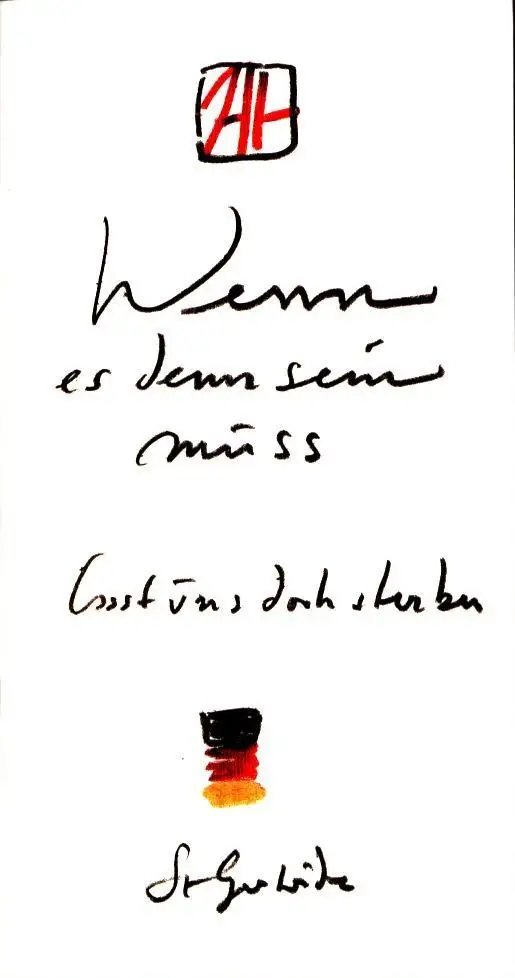 Wenn
es denn sein
muss
lasst uns doch sterben